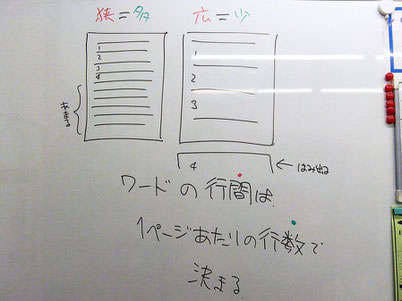 狭=多 広=少
1
2
3
4
あまる
1
2
3
4
はみ出る
ワードの行間は
1ページあたりの行数で
決まる